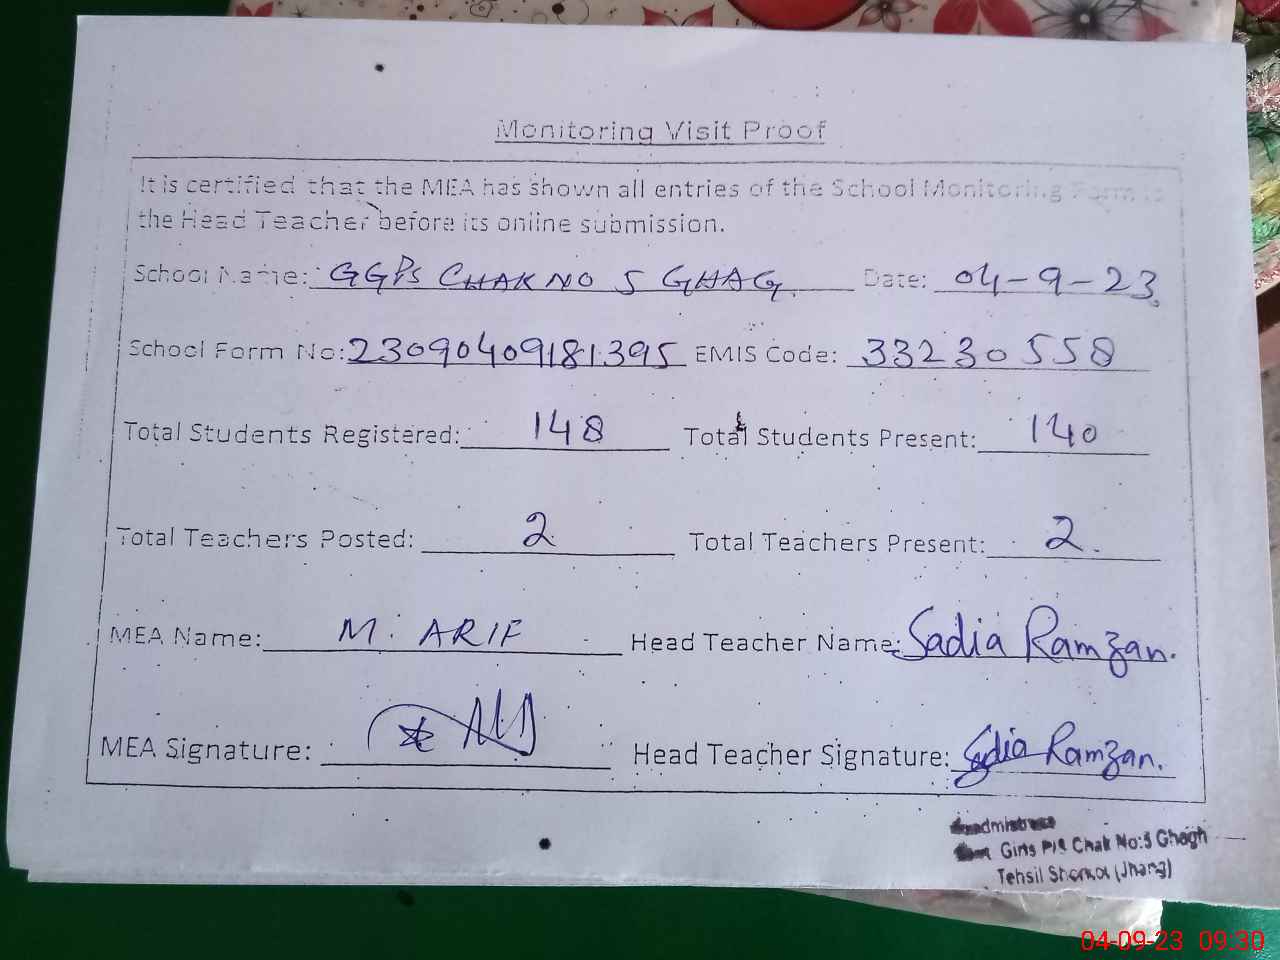 Monitoring Visit Proof
It is certified that the MEA has shown all entries of the School Monitoring Form to
the Head Teacher before its online submission.
School Name: GGPS CHAK NO 5 GHAG Date: 04-9-23
School Form No: 23090409181395 EMIS Code: 33230558
Total Students Registered: 148 Total Students Present: 140
Total Teachers Posted: 2 Total Teachers Present: 2.
MEA Name: M. ARIF Head Teacher Name: Sadia Ramzan.
MEA Signature: Head Teacher Signature: Sadia Ramzan.
Headmistress
Girls P/S Chak No:5 Ghagh
Tehsil Shorkot (Jhang)
04-09-23 09:30